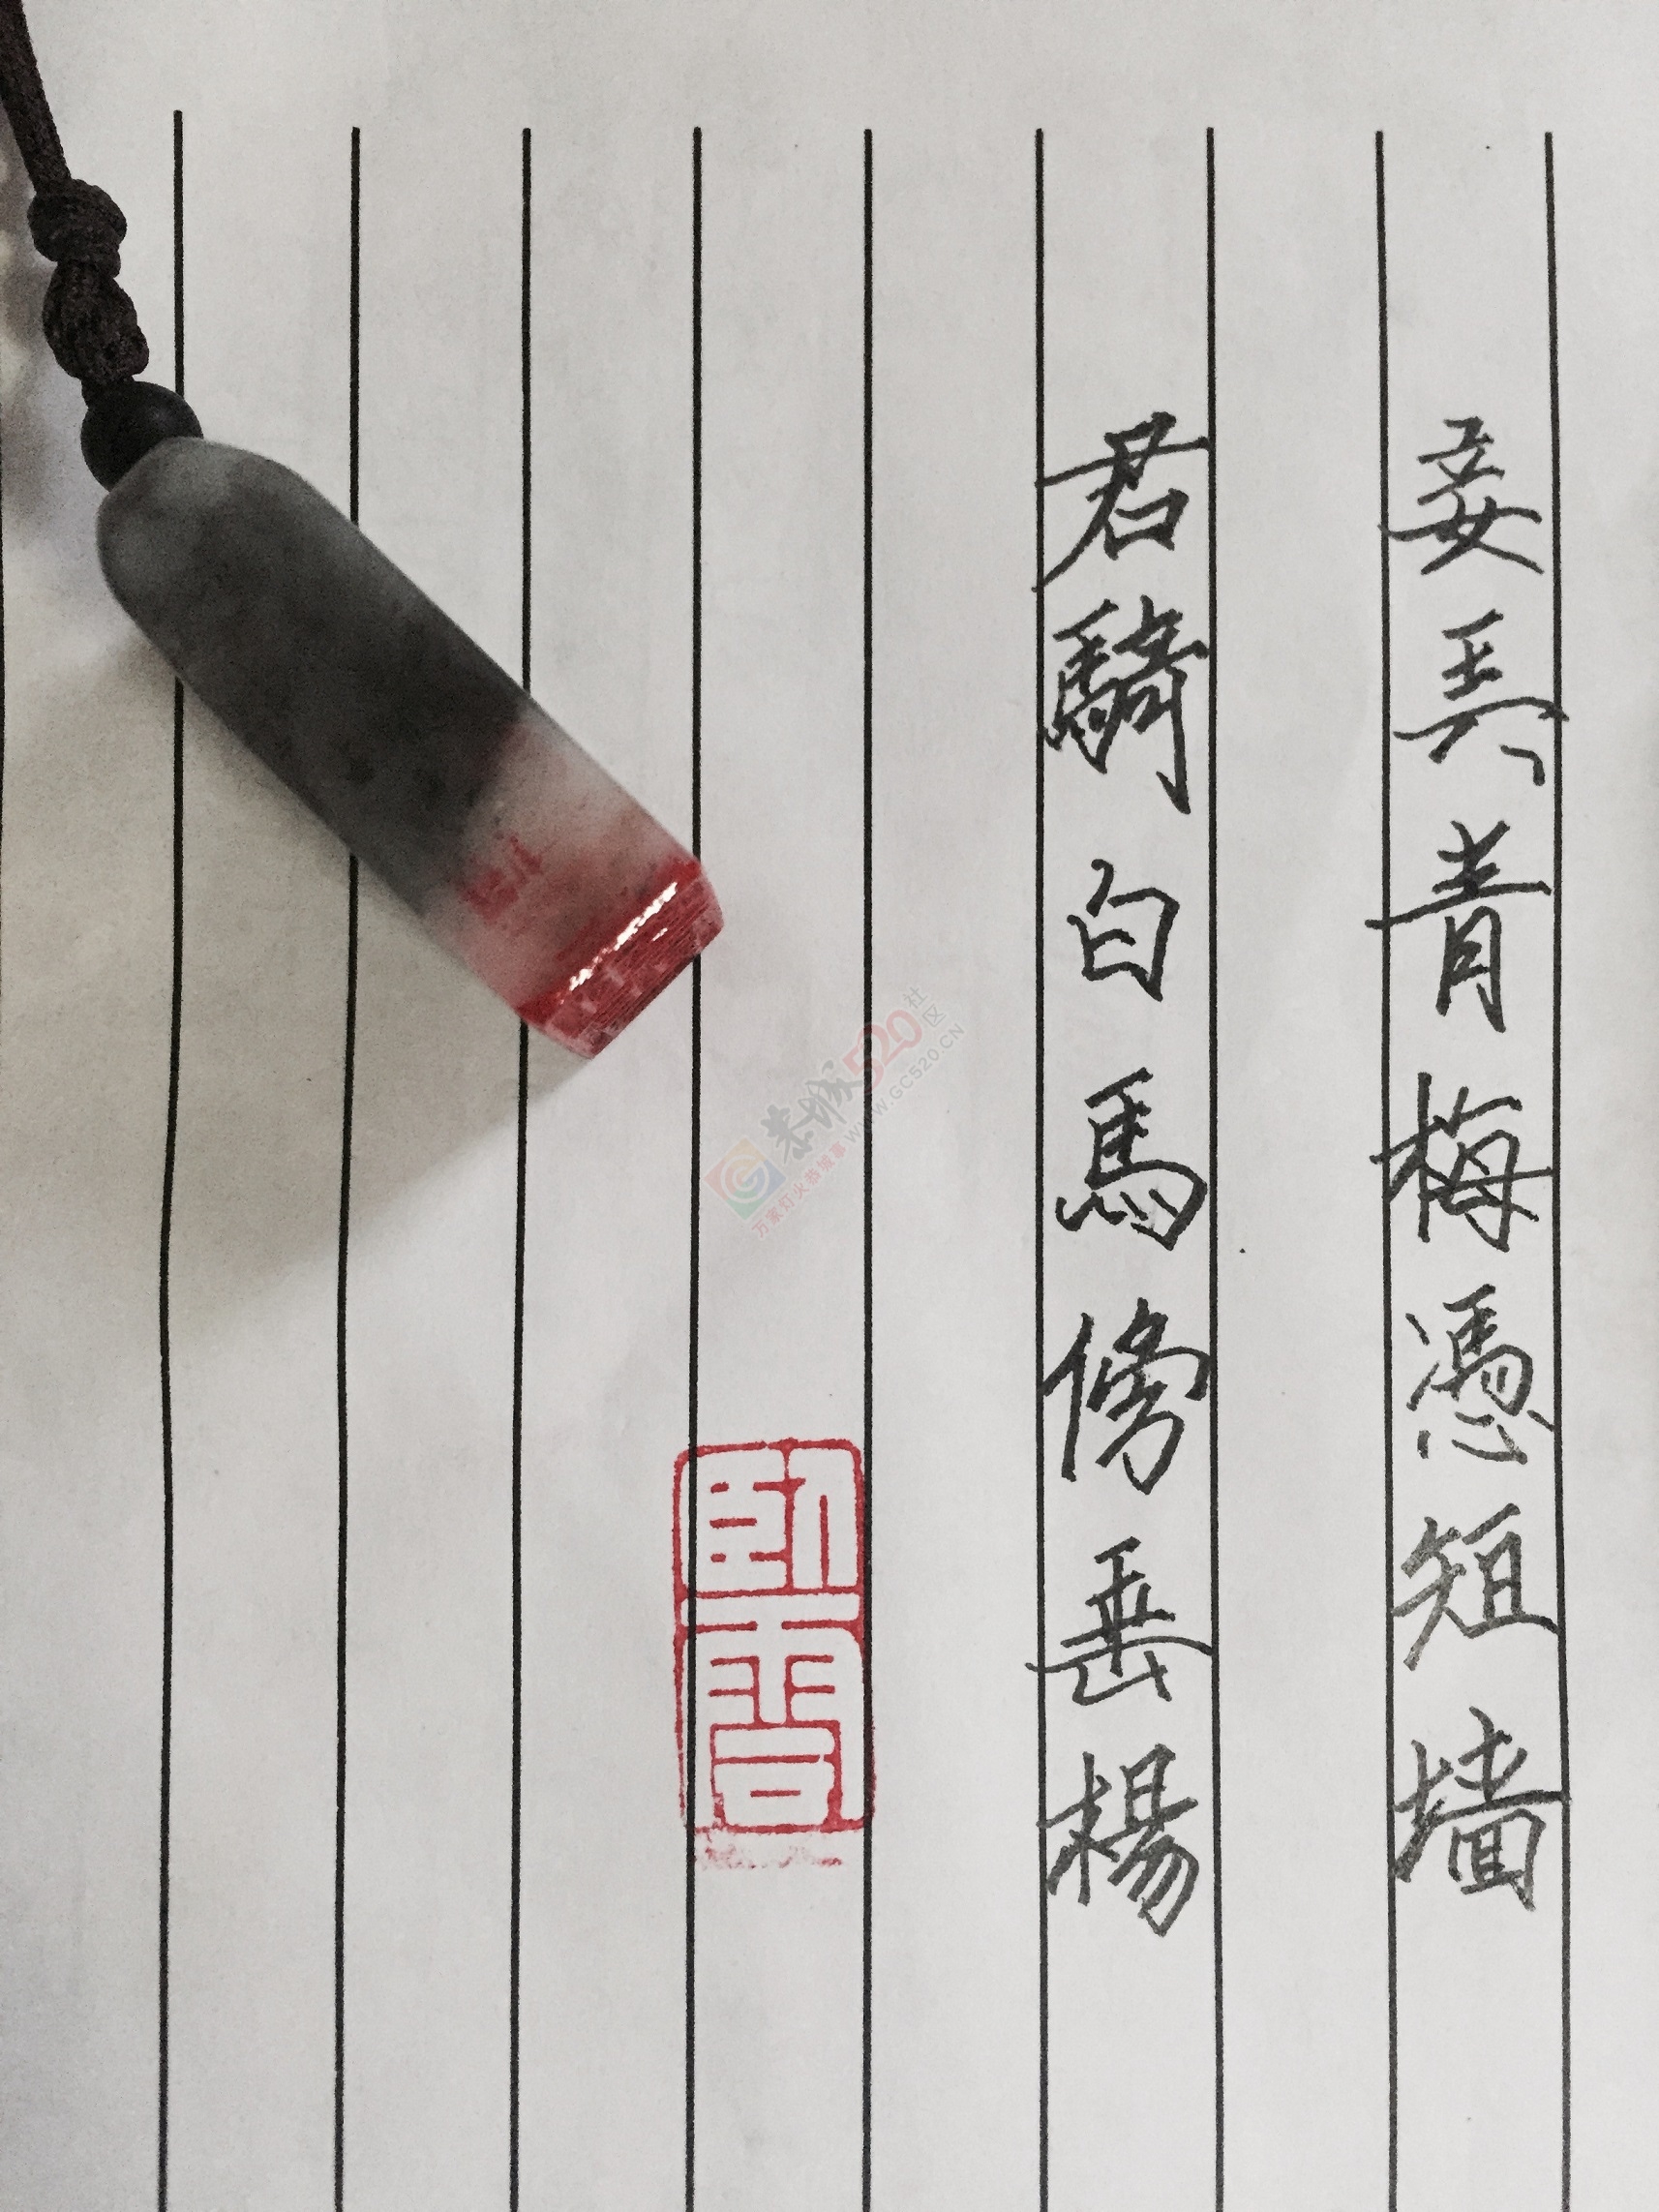 妾弄青梅憑短墙
君騎白馬傍垂楊
卧雪
恭城520社区
WWW.GC520.CN
万家灯火恭城事